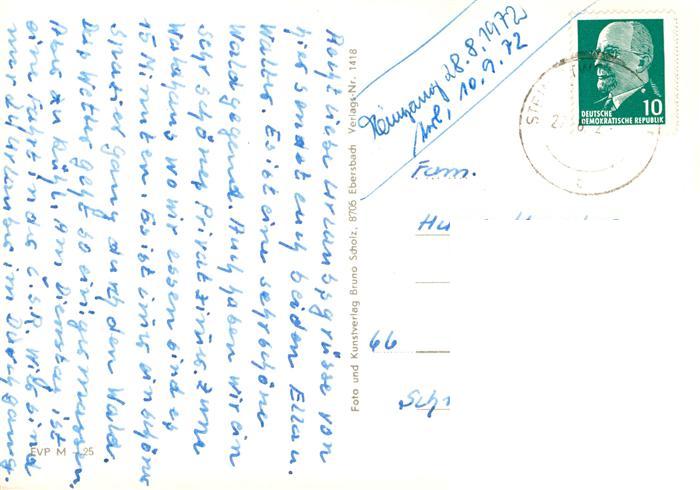 Recht liebe Urlaubsgrüsse von
hier sendet euch beiden Ella u.
Walter. Es ist eine sehr schöne
Waldgegend. Auch haben wir ein
sehr schönes Privatzims. Zum
Walzhaus wo wir essen sind es
15 Minuten. Es ist ims ein schöns
Spaziergang durch den Wald.
Das Wetter geht so einigermassen.
Aus zu Kühl. Am Dienstag ist
eine Fahrt in die C.S.R. Wir sind
nur 24 Urlaubs im Durchgang.
EVP M -,25
Foto und Kunstverlag Bruno Scholz, 8705 Ebersbach Verlags-Nr. 1418
Eingang 28.8.1972
10.9.72
DEUTSCHE
DEMOKRATISCHE REPUBLIK
10
Fam.
66